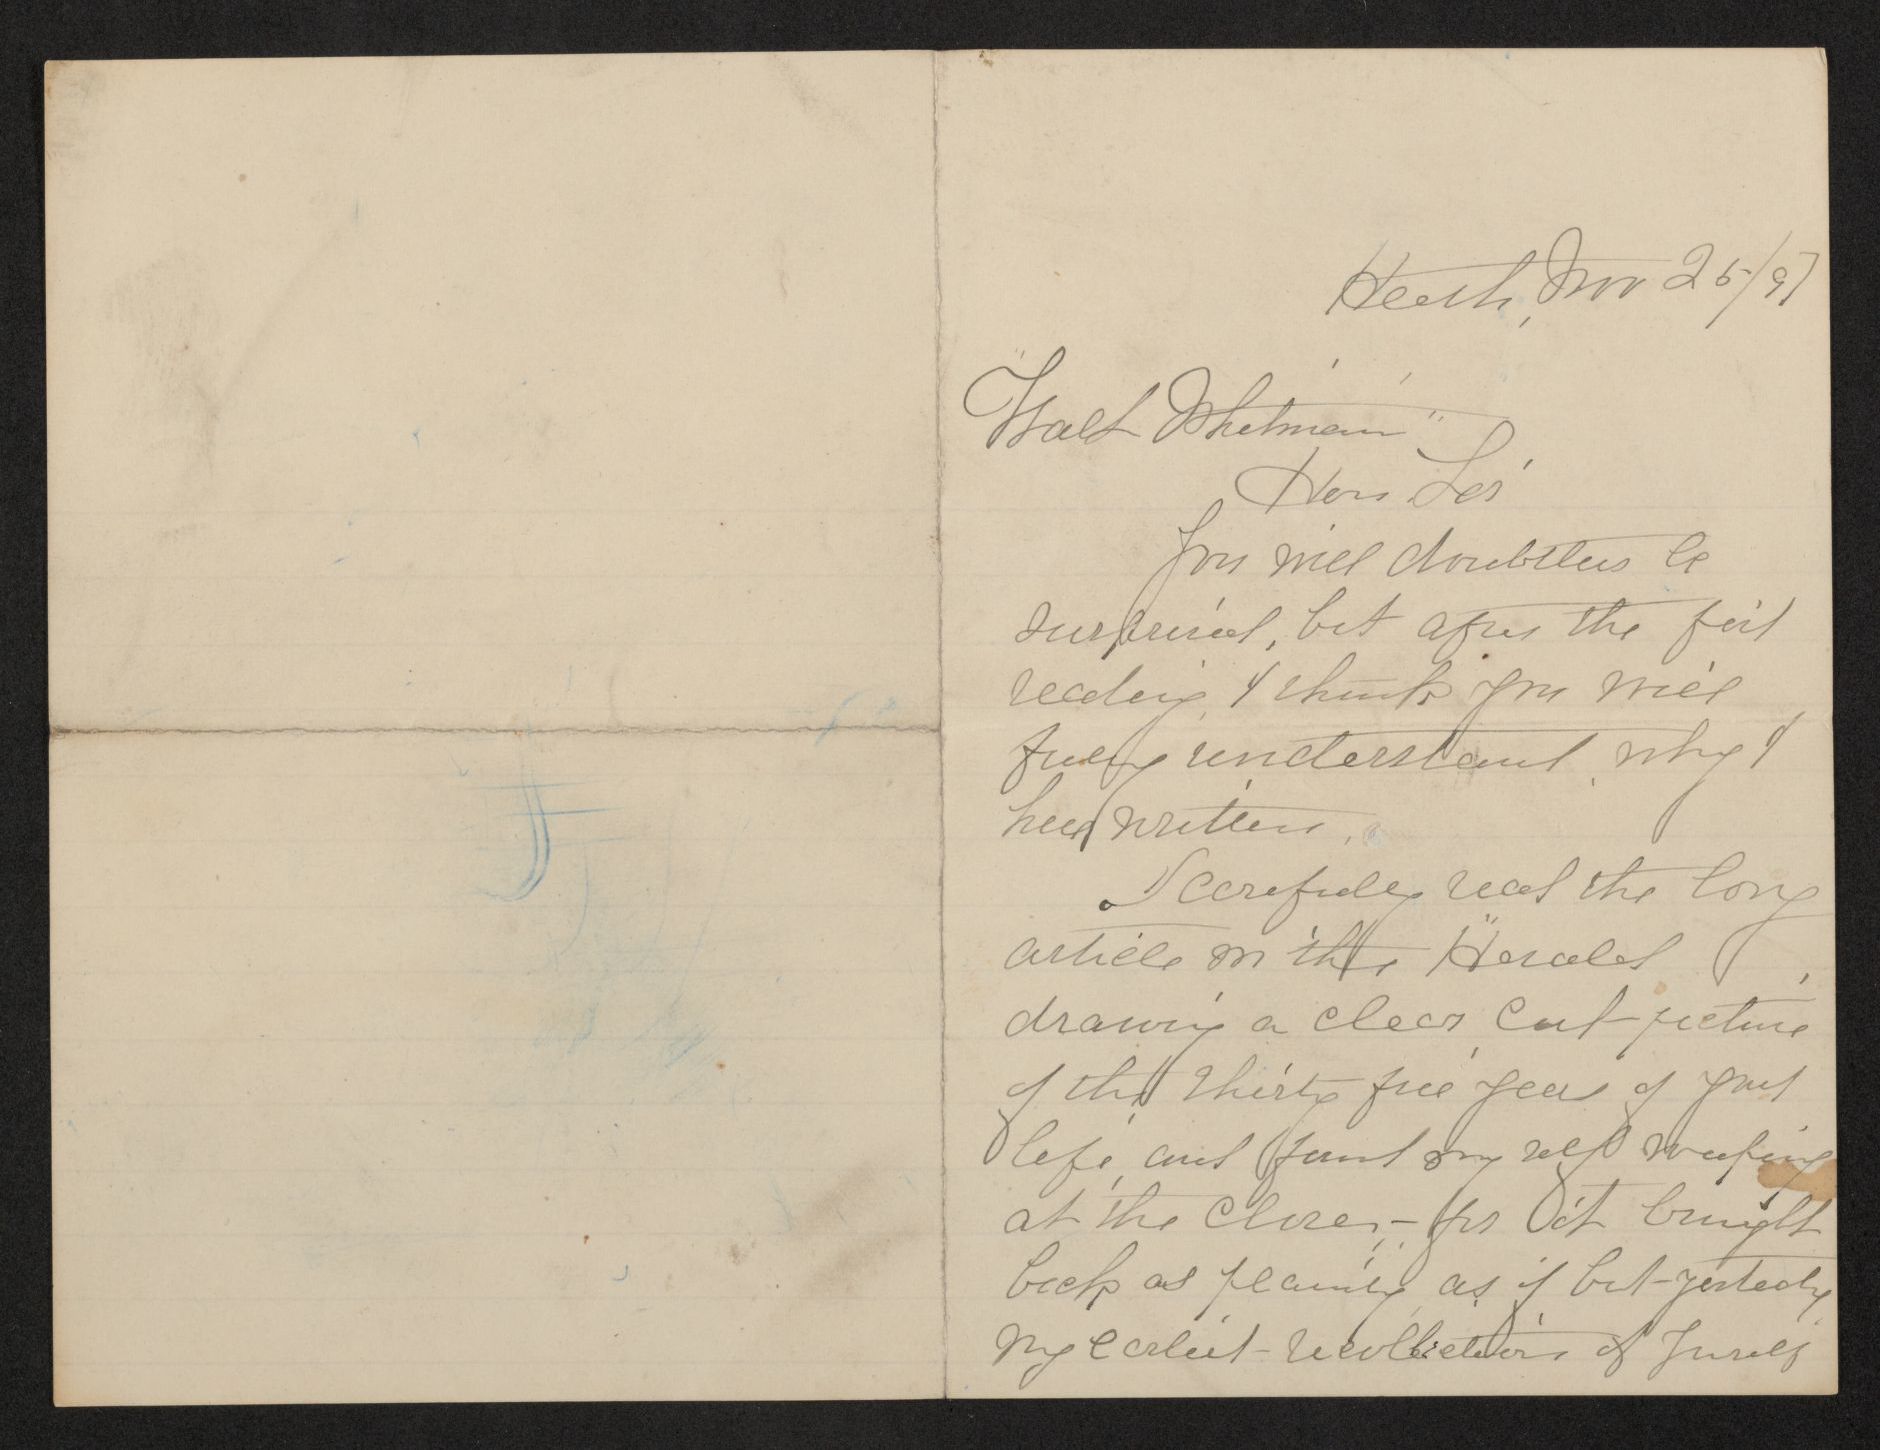 Heath, Nov 25/91
"Walt Whitman"
Hon Sir
You will doubtless be
surprised, but after the first
reading, I think you will
fully understand, why I
have written.
I carefully read the long
article in the "Herald
drawing a clear cut picture
of the thirty five years of your
life, and found my self weeping
at the close, – for it brought
back as plainly, as if but yesterday
my earliest recollections of yourself